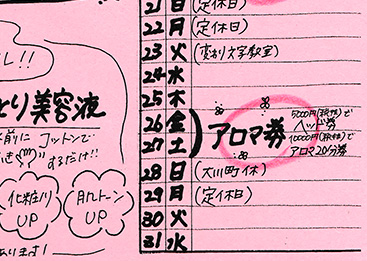 21 日 (定休日)
22 月 (定休日)
23 火 (変わり文字教室)
24 水
25 木
26 金
27 土
アロマ券
5000円(税抜)で
ヘッド券
10000円(税抜)で
アロマ20分券
28 日 (大川町休)
29 月 (定休日)
30 火
31 水
し!!
とり美容液
前に コットンで
するだけ!!
化粧ノリ
UP
肌トーン
UP
あります!